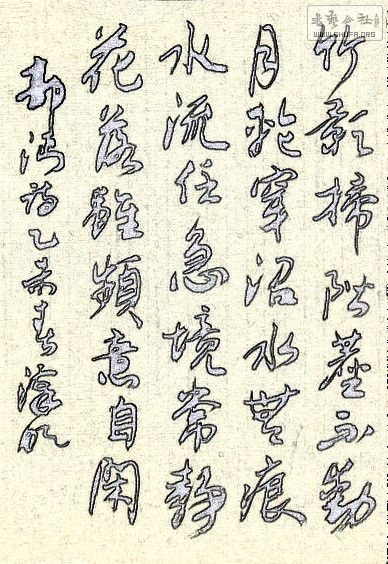 竹影掃階塵不動
月輪穿沼水無痕
水流任急境常靜
花落雖頻意自閑
詩乙春
书艺公社
WWW.SHUFA.ORG